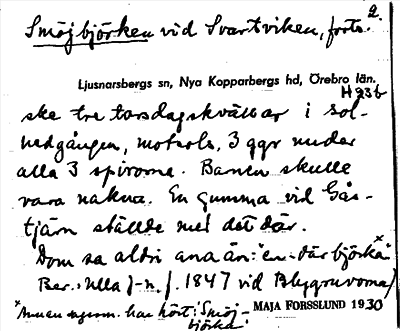 2.
Smöjbjörken vid Svartviken, forts.
Ljusnarsbergs sn, Nya Kopparbergs hd, Örebro län.
H 936
ske tre torsdagskvällar i sol-
nedgången, motsols, 3 ggr under
alla 3 spirorna. Barnen skulle
vara nakna. En gumma vid Gås-
tjärn ställde med det där.
Dom sa aldri ana än: "en där björka"ˣ
Ber.: Ulla J-n f. 1847 vid Blygruvorna/
ˣAnnan ngsm. har hört: Smöj-
björka.
MAJA FORSSLUND 1930